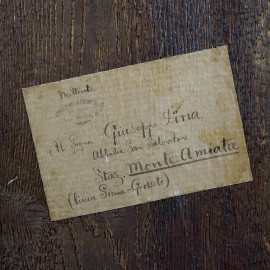 Mittente
Al Signor Giuseppe Pina
Abbadia San Salvatore
Staz. Monte Amiata
(linea Siena-Grosseto)